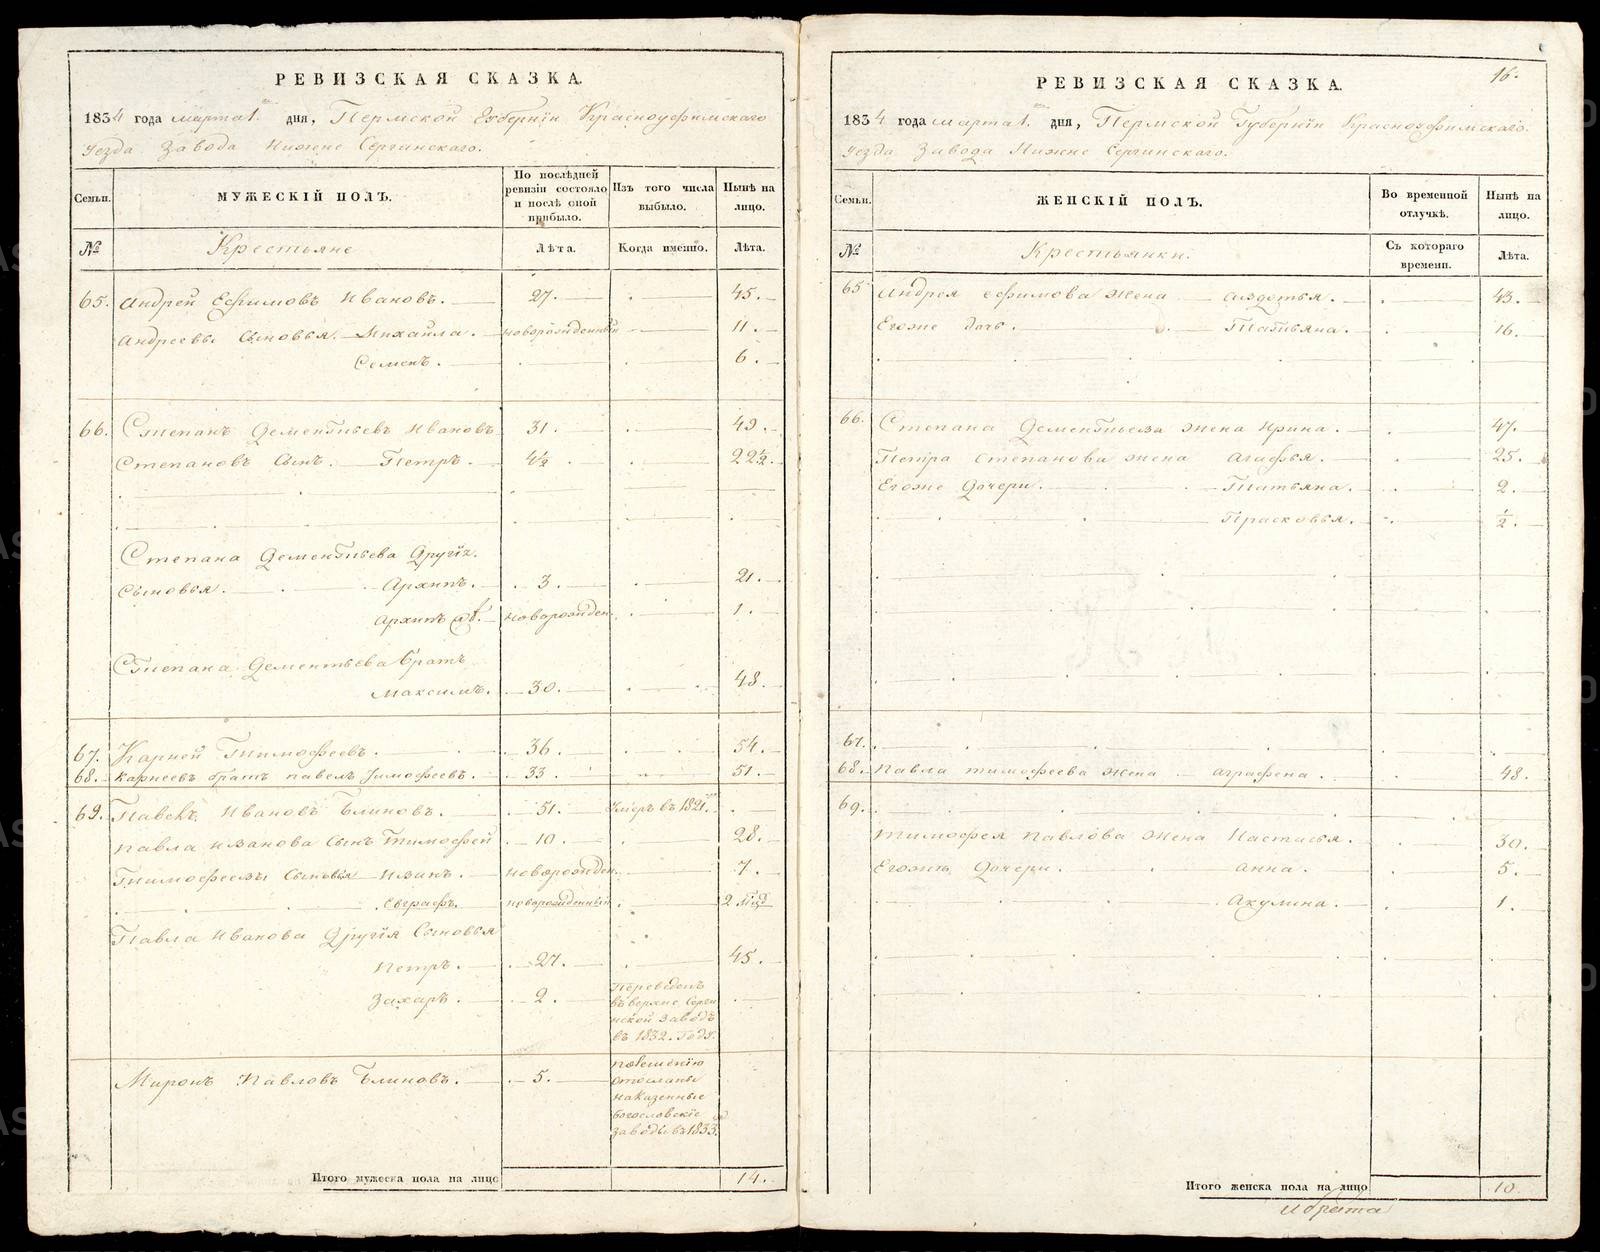 РЕВИЗСКАЯ СКАЗКА.
1834 года марта 1. дня, Пермской Губернiи Красноуфимскаго
уезда Завода Нижне Сергинскаго.
Семьи. МУЖЕСКІЙ ПОЛЪ. По послѣдней ревизіи состояло и послѣ оной прибыло. Изъ того числа выбыло. Нынѣ на лицо.
№ Крестьяне Лѣта. Когда именно. Лѣта.
65. Андрей Ефимовъ Ивановъ. 27. 45.
Андреевы Сыновья. Михайла. новорожденный 11.
Семенъ. 6.
66. Степанъ Дементьевъ Ивановъ 31. 49.
Степановъ Сынъ. Петръ. 4½ 22½.
Степана Дементьева Другiя
Сыновья. Архипъ. 3. 21.
Архипъ новорожден. 1.
Степана Дементьева братъ
Максимъ. 30. 48.
67. Карней Тимофеевъ. 36. 54.
68. Карнеевъ братъ павелъ Тимофеевъ. 33. 51.
69. Павелъ Ивановъ Блиновъ. 51. Умеръ въ 1821.
Павла иванова Сынъ Тимофей 10. 28.
Тимофеевы Сыновья Иванъ. новорожден. 7.
Евграфъ. новорожденный 2
Павла Иванова Другiя Сыновья
Петръ. 27. 45.
Захаръ. 2. Переведенъ
въ верхне Серги
нской Заводъ
въ 1832. Годе.
Миронъ Павловъ Блиновъ. 5.
отосланъ
наказенные
Богословскiе
заводы въ 1833.
Итого мужеска пола на лицо 14.
16.
РЕВИЗСКАЯ СКАЗКА.
1834 года марта 1. дня, Пермской Губернiи Красноуфимскаго
уезда Завода Нижне Сергинскаго.
Семьи. ЖЕНСКІЙ ПОЛЪ. Во временной отлучкѣ. Нынѣ на лицо.
№ Крестьянки. Съ котораго времени. Лѣта.
65 Андрея ефимова жена Авдотья. 43.
Егоже дочь. Татьяна. 16.
66. Степана Дементьева жена Ирина. 47.
Петра Степанова жена Агафья. 25.
Егоже Дочери. Татьяна. 2.
Прасковья. ½.
67.
68. Павла тимофеева жена аграфена. 48.
69.
Тимофея Павлова жена Настасья. 30.
Егожъ Дочери. анна. 5.
Акулина. 1.
Итого женска пола на лицо 10.